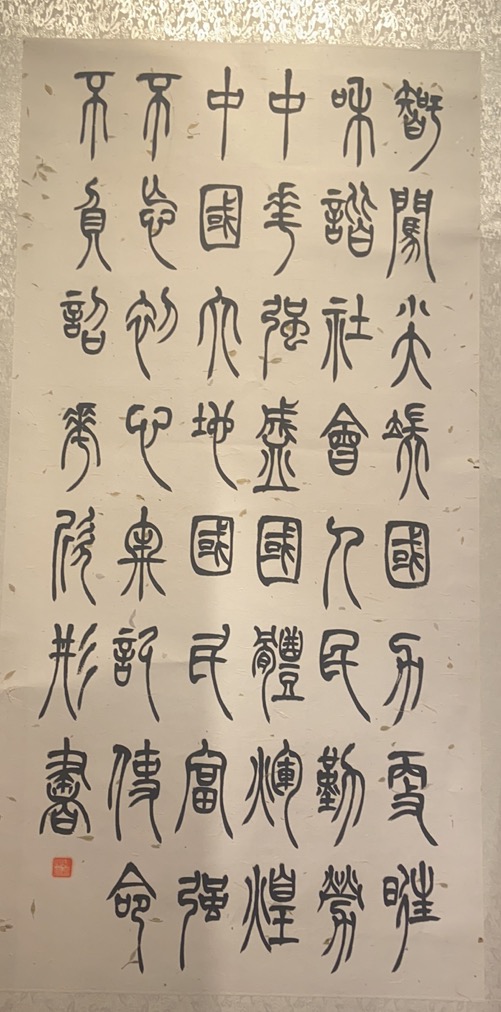 智闖尖端國力更旺
和諧社會人民勤勞
中華强盛國體輝煌
中國大地國民富强
不忘初心牢記使命
不負詔華書